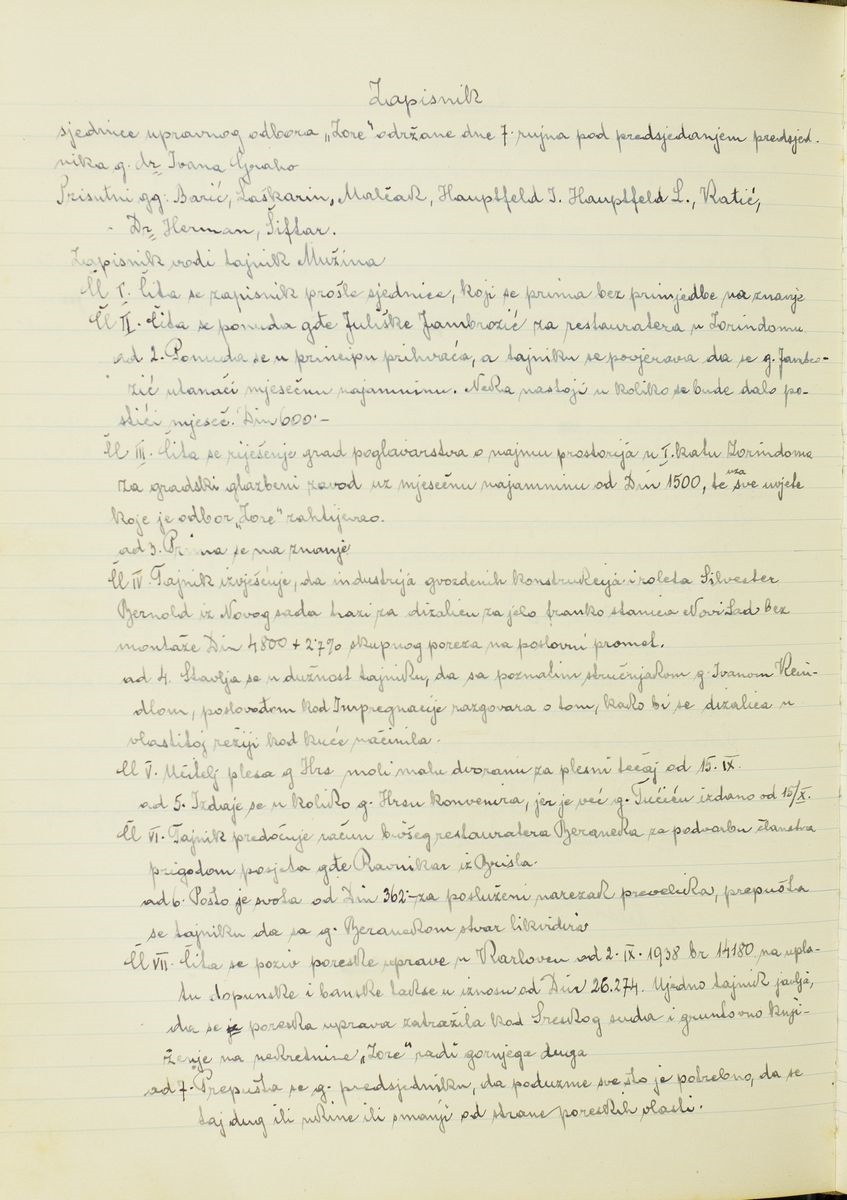 Zapisnik
sjednice upravnog odbora „Zore" održane dne 7. rujna pod predsjedanjem predsjed-
nika g. dr Ivana Graho
Prisutni gg: Barić, Laškarin, Malčak, Hauptfeld I. Hauptfeld L., Ratić,
Dr Herman, Šiftar.
Zapisnik vodi tajnik Mužina
Čl I. Čita se zapisnik prošle sjednice, koji se prima bez primjedbe na znanje
Čl II. Čita se ponuda gđe Juliške Jambrozić za restauratera u Zorindomu
ad 2. Ponuda se u principu prihvaća, a tajniku se povjerava da se g. Jambro-
zić utanači mjesečnu najamninu. Neka nastoji u koliko se bude dalo po-
stići mjeseč. Din 600.-
Čl III. Čita se riješenje grad poglavarstva o najmu prostorija u I. katu Zorindoma
za gradski glazbeni zavod uz mjesečnu najamninu od Din 1500, te uza sve uvjete
koje je odbor „Zore" zahtijevao.
ad 3. Prima se na znanje
Čl IV. Tajnik izvješćuje, da industrija gvozdenih konstrukcija i roleta Silvester
Bernold iz Novog sada trazi za dizalicu za jelo franko stanica Novi Sad bez
montaže Din 4800 + 2.7% skupnog poreza na poslovni promet.
ad 4. Stavlja se u dužnost tajniku, da sa poznatim stručnjakom g. Ivanom
poslovođom kod Impregnacije razgovara o tom, kako bi se dizalica u
vlastitoj režiji kod kuće načinila.
Čl V. Učitelj plesa g Hrs moli malu dvoranu za plesni tečaj od 15. IX.
ad 5. Izdaje se u koliko g. Hrsu konvenira, jer je već g. Tučiću izdano od 15/X.
Čl VI. Tajnik predočuje račun bivšeg restauratera Beraneka za podvorbu članstva
prigodom posjeta gđe Ravnikar iz Brisla.
ad 6. Pošto je svota od Din 362.- za posluženi narezak prevelika, prepušta
se tajniku da sa g. Beranekom stvar likvidira
Čl VII. Čita se poziv poreske uprave u Karlovcu od 2. IX. 1938 br 14180 na upla-
tu dopunske i banske takse u iznosu od Din 26.274. Ujedno tajnik javlja,
da se je poreska uprava zatražila kod Sreskog suda i gruntovno knji-
ženje na nekretnine „Zore" radi gornjega duga
ad 7. Prepušta se g. predsjedniku, da poduzme sve što je potrebno, da se
taj dug ili ukine ili smanji od strane poreskih vlasti.